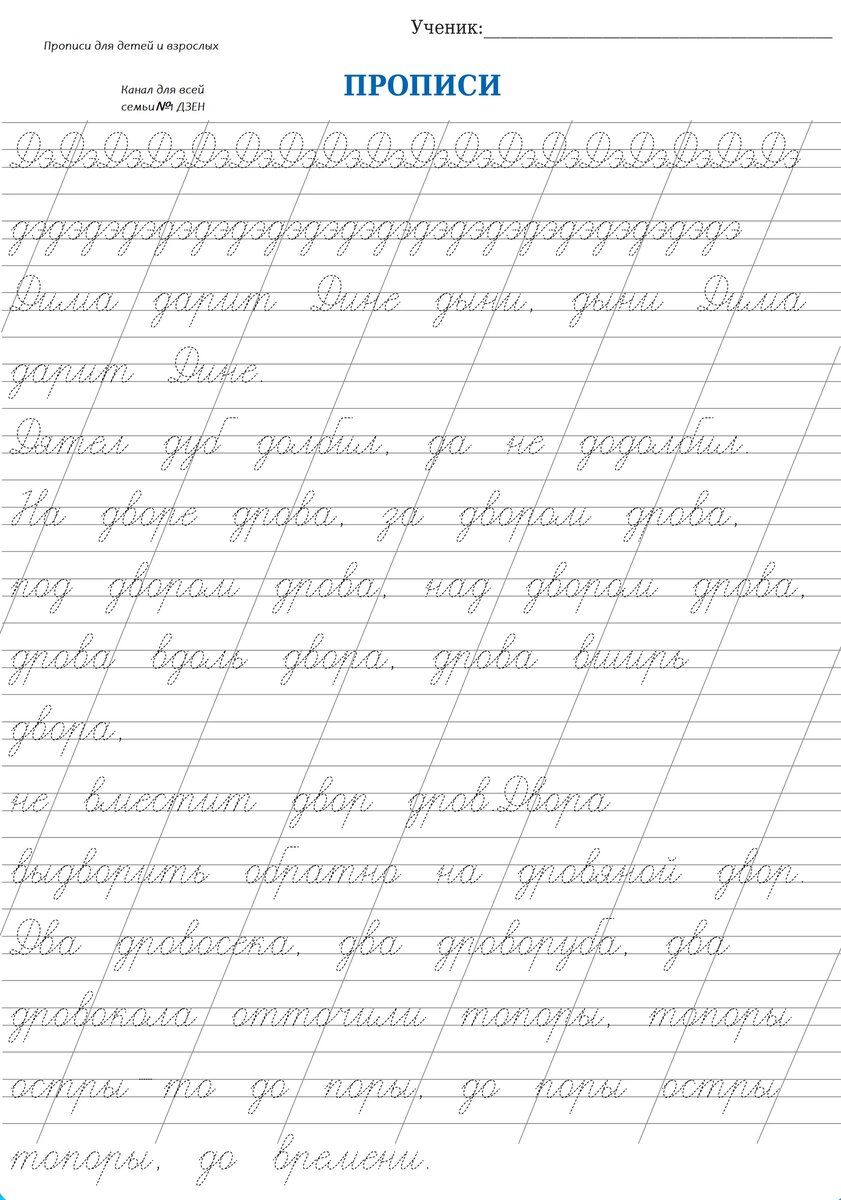 Ученик:
Прописи для детей и взрослых
Канал для всей
семьи №1 ДЗЕН
ПРОПИСИ
ДэДэДэДэДэДэДэДэДэДэДэДэДэДэДэДэДэДэ
дэдэдэдэдэдэдэдэдэдэдэдэдэдэдэдэдэдэдэдэ
Дима дарит Дине дыни, дыни Дима
дарит Дине.
Дятел дуб долбил, да не додолбил.
На дворе дрова, за двором дрова,
под двором дрова, над двором дрова,
дрова вдоль двора, дрова вширь
двора,
не вместит двор дров.Двора
выдворить обратно на дровяной двор.
Два дровосека, два дроворуба, два
дровокола отточили топоры, топоры
остры-то до поры, до поры остры
топоры, до времени.